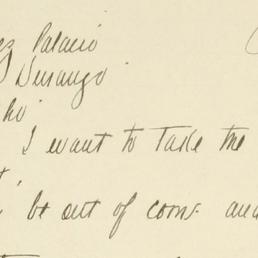 ez Palacio
Durango
I want to take the
be out of coms. and